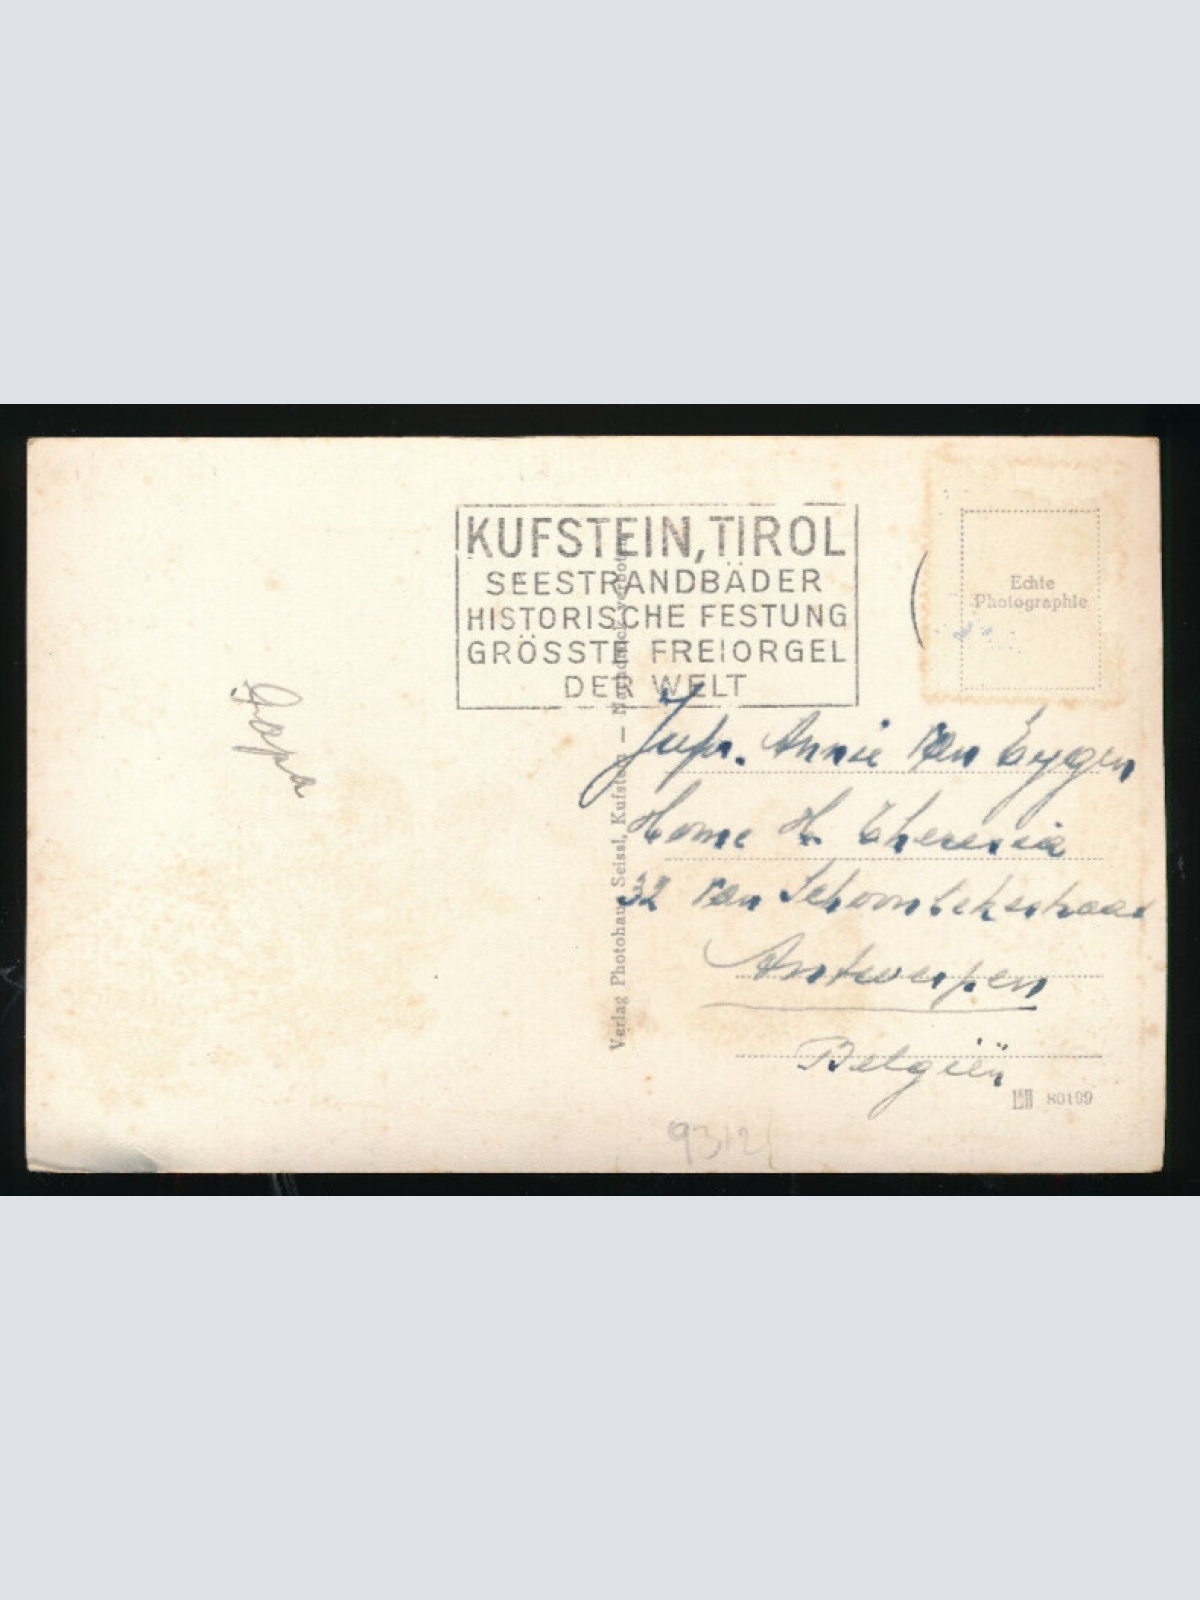 KUFSTEIN, TIROL
SEESTRANDBÄDER
HISTORISCHE FESTUNG
GRÖSSTE FREIORGEL
DER WELT
Echte
Photographie
Papa
Verlag Photohaus Seissl, Kufstein — Nachdruck verboten
Jufr. Annie Van Eygen
Home H. Theresia
32 Van Schoonbekestraat
Antwerpen
Belgiën
80199